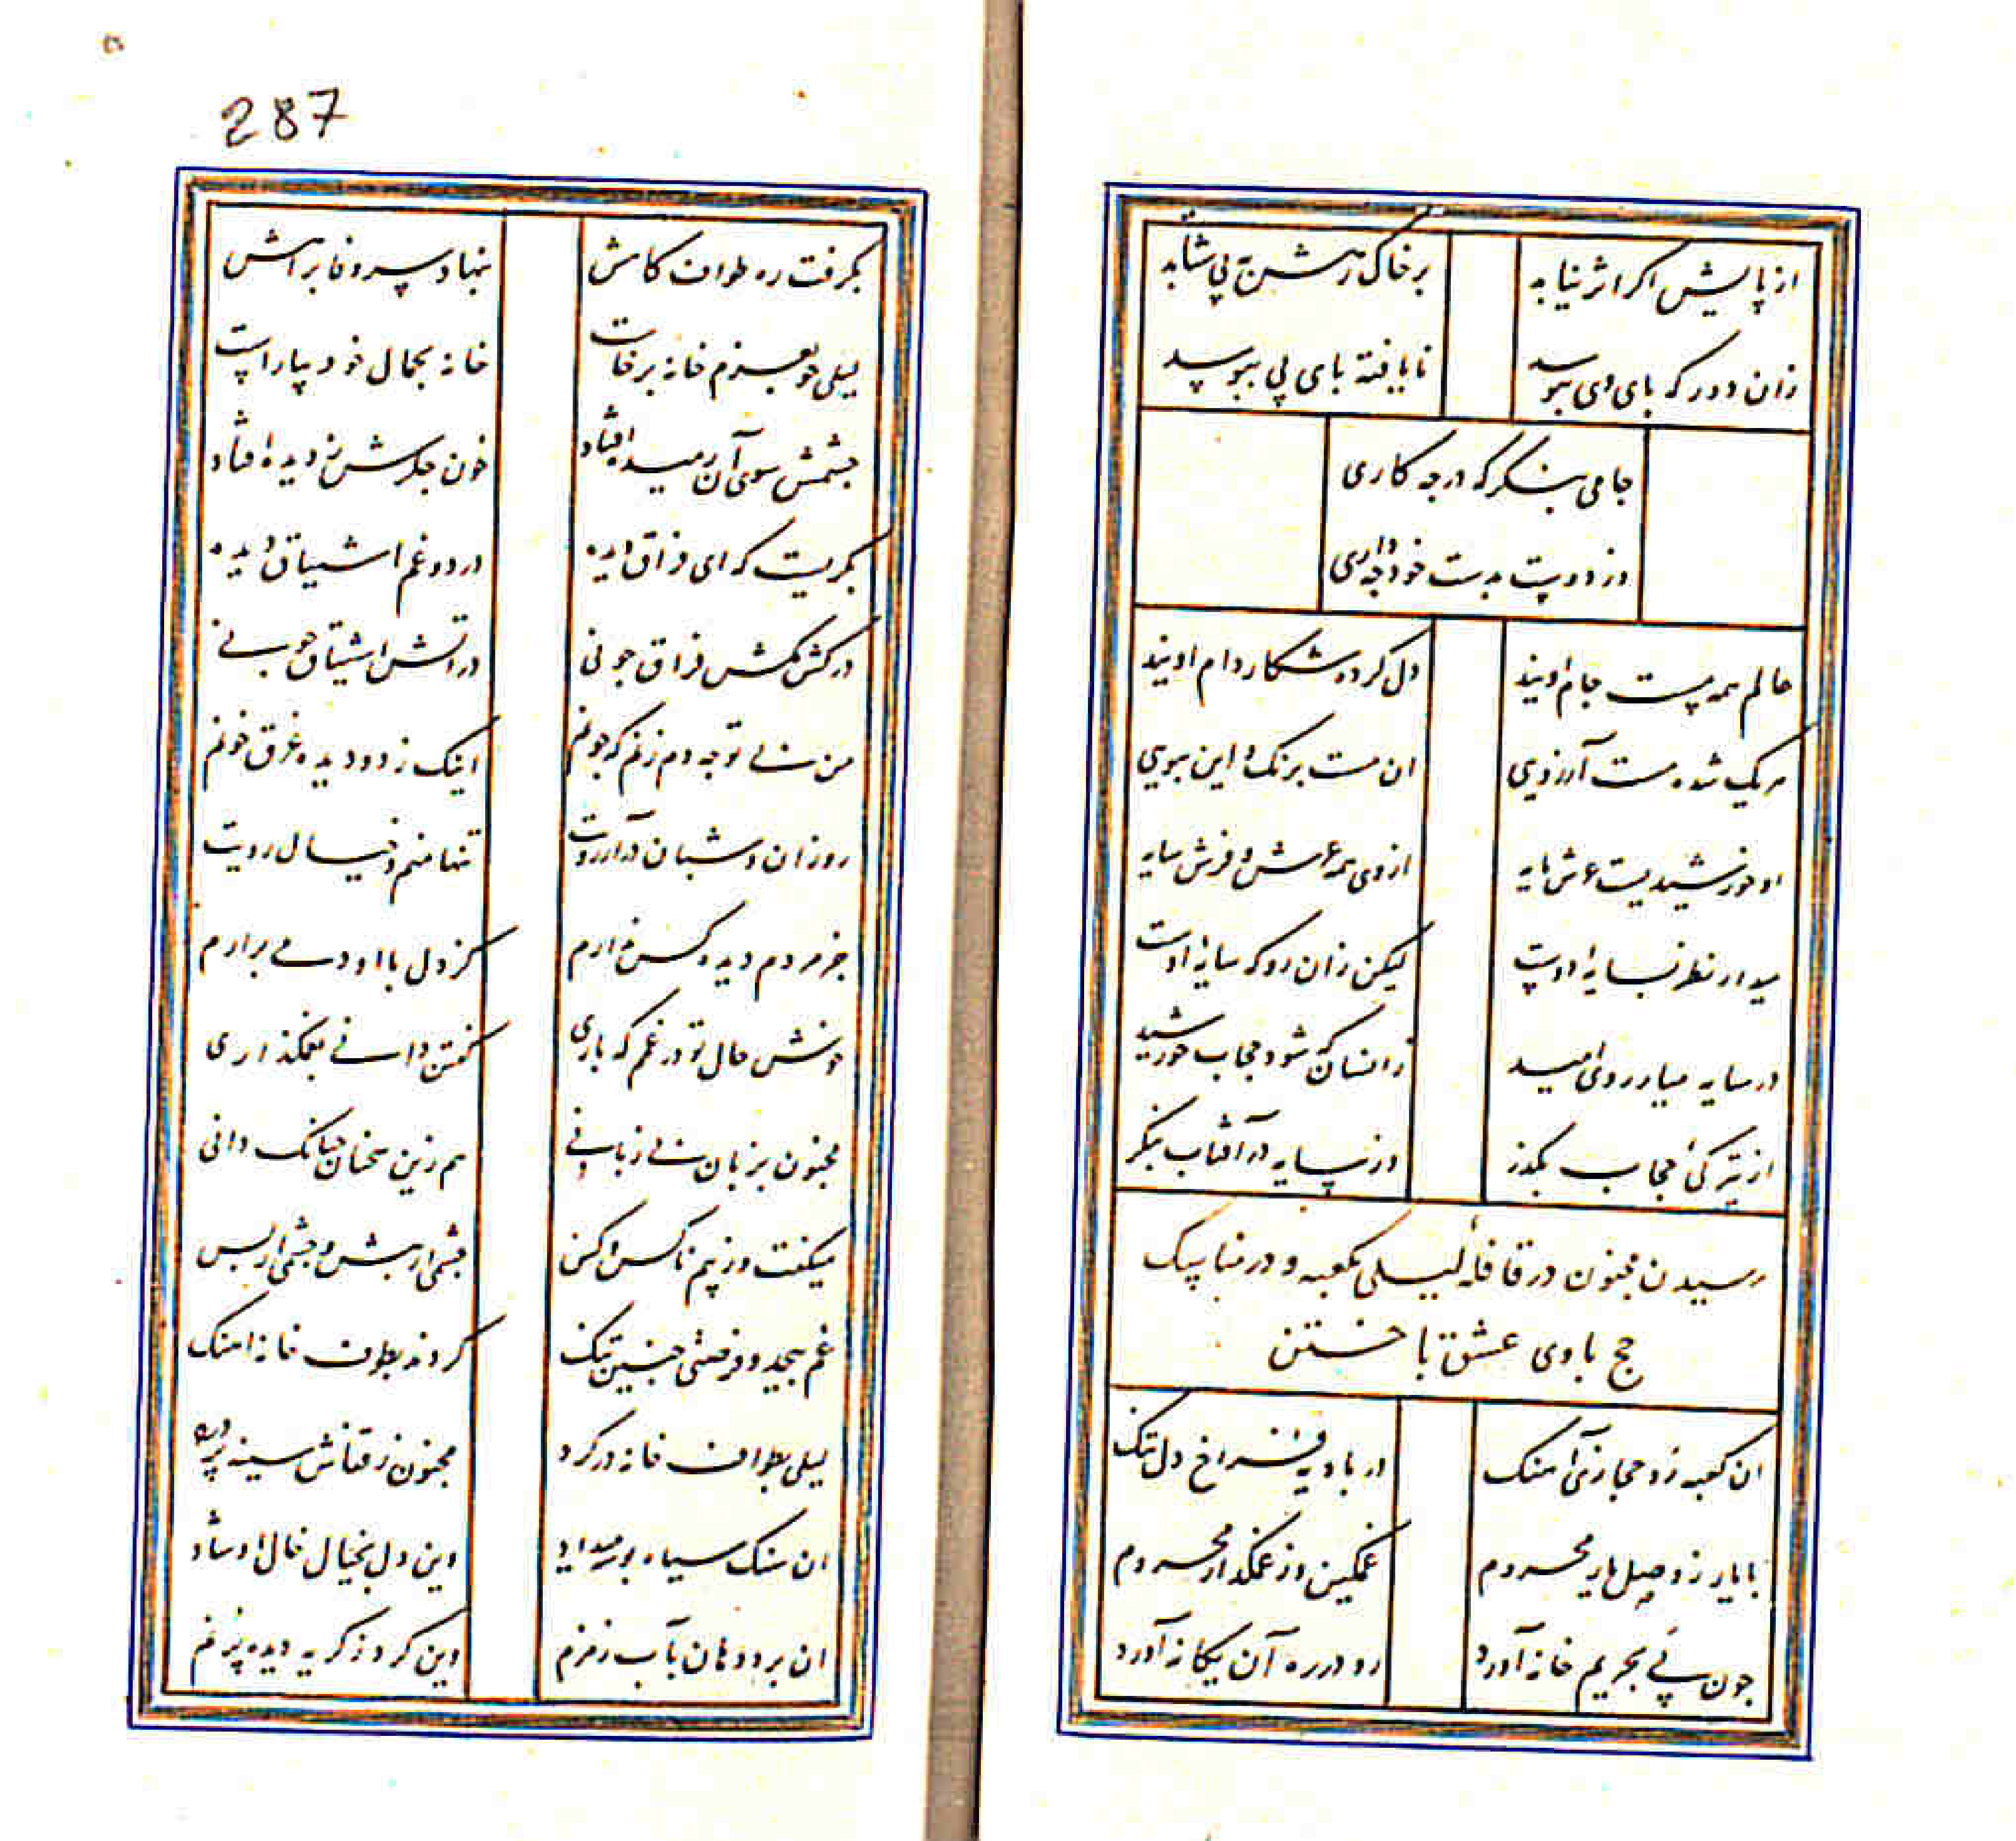 از پایش اگر اثر نیابد
بر خاک رهش پی شتابد
زان دور که پای وی ببوسد
نایافته پای پی ببوسد
جامی بنگر که در چه کاری
وز دوست بدست خود چه داری
عالم همه مست جام اویند
دل کرده شکار دام اویند
هر یک شده مست آرزویی
ان مست برنک و این ببویی
او خورشیدیست عرش پایه
از وی همه عرش و فرش سایه
میدار نظر بسایه اوست
لیکن زان رو که سایه اوست
در سایه میار روی امید
زانسان که شود حجاب خورشید
از تیرکی حجاب بکذر
وز سایه در آفتاب بنکر
رسیدن مجنون در قافله لیلی بکعبه و در مناسک
حج با وی عشق باختن
ان کعبه رو حجازی آهنک
در بادیه فراخ دل تنک
با یار ز وصل یار محروم
غمکین و ز غمکسار محروم
جون پی بحریم خانه آورد
رو در ره آن یکانه آورد
287
بکرفت ره طواف کامش
بنهاد سر وفا براهش
لیلی جو بعزم خانه برخاست
خانه بجمال خود بیاراست
جشمش سوی آن رمیده افتاد
خون جکرش ز دیده افتاد
بکریست که ای فراق دیده
درد و غم اشتیاق دیده
در کشمکش فراق جونی
در اتش اشتیاق جونی
من بی تو جه دم زنم که جونم
اینک ز دو دیده غرق خونم
روزان و شبان در آرزویت
تنها منم و خیال رویت
جز مردم دیده کس ندارم
کز دل با او دمی برارم
خوش حال تو در غم که باری
کفتن دانی بغمکذاری
مجنون بزبان بی زبانی
هم زین سخنان جنانک دانی
میکفت وز بیم ناکس و کس
جشمی از پیش و جشمی از پس
غم بیحد و فرصتی جنین تنک
کردند بطوف خانه اهنک
لیلی بطواف خانه در کرد
مجنون ز قفاش سینه پر درد
ان سنک سیاه بوسه میداد
وین دل بخیال خال او شاد
ان برد دهان بآب زمزم
وین کرد ز کریه دیده پر نم